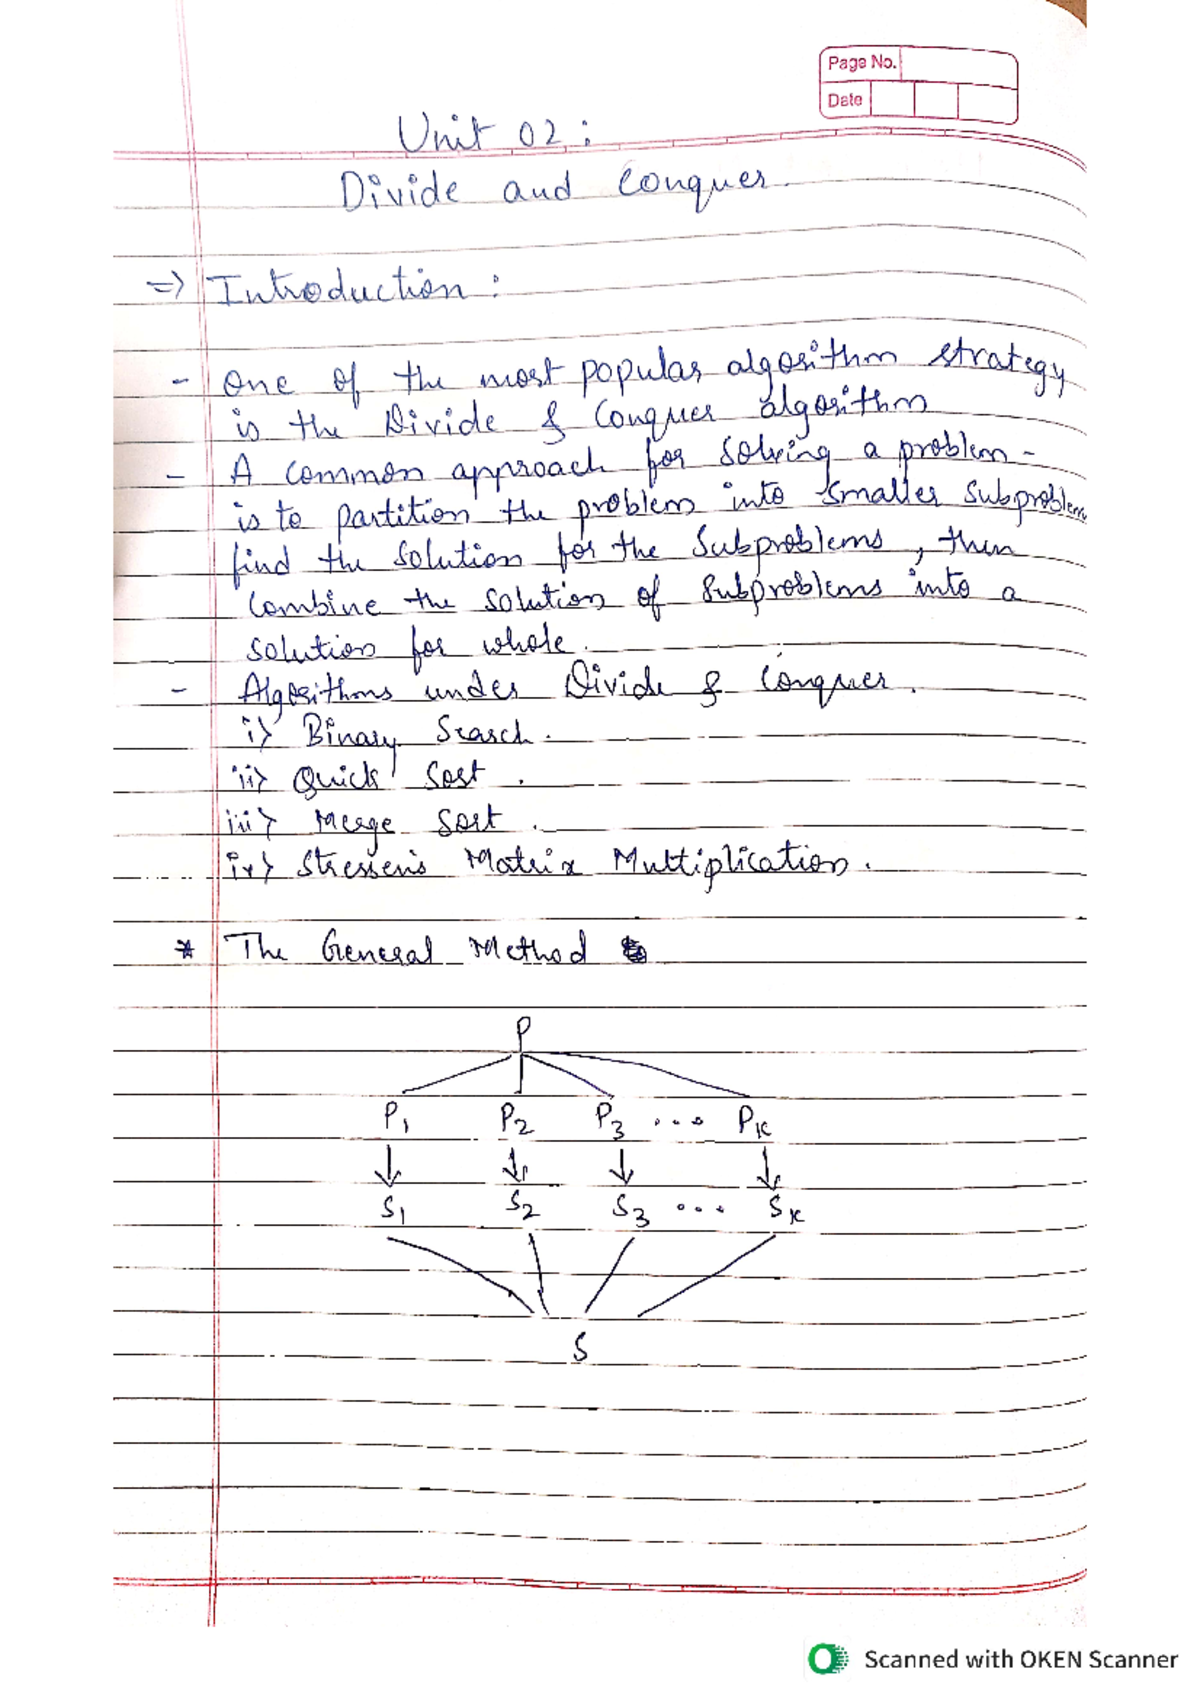 Page No.
Date
Unit 02:
Divide and Conquer
=> Introduction:
- One of the most popular algorithm strategy
is the Divide & Conquer algorithm
- A common approach for solving a problem -
is to partition the problem into smaller subproblem
find the solution for the subproblems, then
combine the solution of subproblems into a
solution for whole.
- Algorithms under Divide & Conquer.
i> Binary Search.
ii> Quick Sort.
iii> Merge Sort.
iv> Stressen's Matrix Multiplication.
* The General Method
P
P1 P2 P3 ... PK
↓ ↓ ↓ ↓
S1 S2 S3 ... SK
S
Scanned with OKEN Scanner